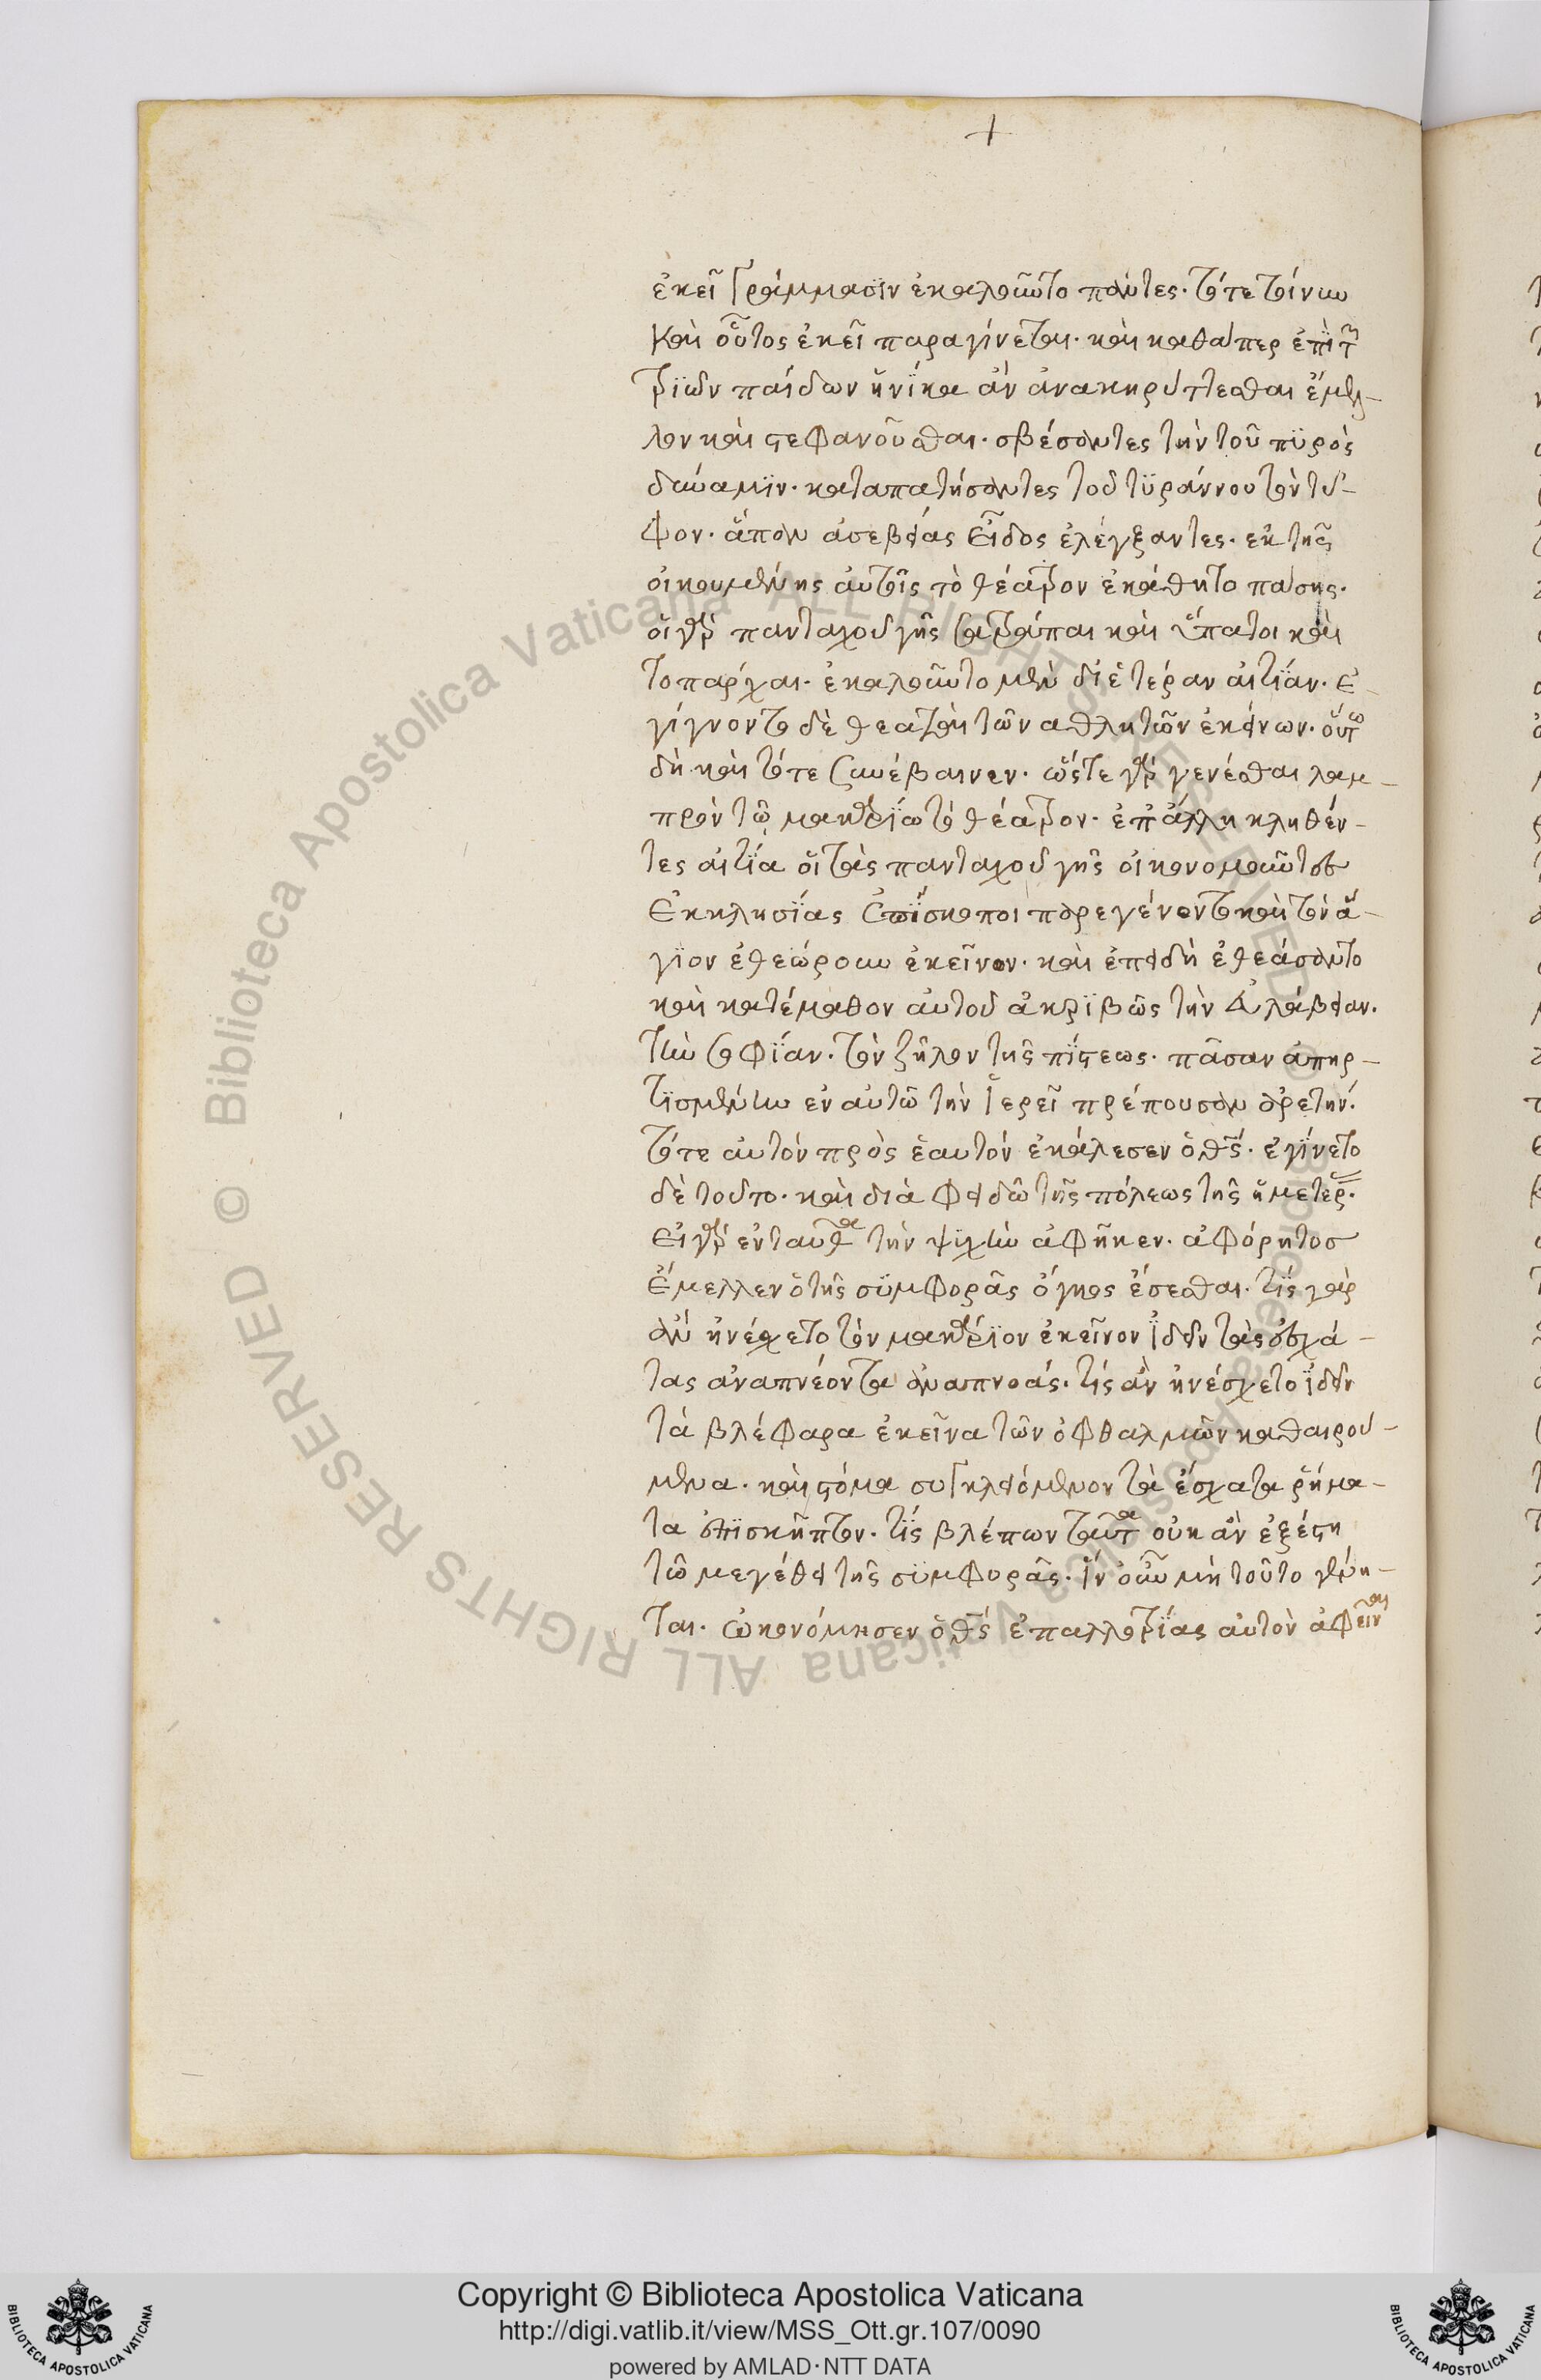 +
ἐκεῖ γράμμασϊν ἐκαλοῦντο πάντες· τότε τοίνυν
καὶ οὗτος ἐκεῖ παραγίνεται· καὶ καθάπερ ἐπὶ τῶν
τριῶν παίδων ἡνίκα ἂν ἀνακηρύττεσθαι ἔμελ-
λον καὶ στεφανοῦσθαι· σβέσαντες τὴν τοῦ πϋρὸς
δύναμϊν· καταπατήσαντες τοῦ τϋράννου τὸν τύ-
φον· ἅπαν ἀσεβείας εἶδος ἐλέγξαντες· ἐκ τῆς
οἰκουμένης αὐτοῖς τὸ θέατρον ἐκάθητο πάσης·
οἵ γὰρ πανταχοῦ γῆς σατράπαι καὶ ὕπατοι καὶ
τοπάρχαι· ἐκαλοῦντο μὲν δι' ἑτέραν αἰτίαν· ἐ-
γίγνοντο δὲ θεαταὶ τῶν αθλητῶν ἐκείνων· οὕτω
δὴ καὶ τότε συνέβαινεν· ὥστε γὰρ γενέσθαι λαμ-
πρὸν τῶ μακαρίω τὸ θέατρον· ἐπ' ἄλλη κληθέν-
τες αἰτία οἵ τὰς πανταχοῦ γῆς οἰκονομοῦντες
Ἐκκλησίας ἐπίσκοποι παρεγένοντο καὶ τὸν ἅ-
γϊον ἐθεώρουν ἐκεῖνον· καὶ ἐπειδὴ ἐθεάσαντο
καὶ κατέμαθον αὐτοῦ ἀκρϊβῶς τὴν εὐλάβειαν·
τὴν σοφίαν· τὸν ζῆλον τῆς πίστεως· πᾶσαν ἀπηρ-
τϊσμένην ἐν αὐτῶ τὴν ἱερεῖ πρέπουσαν ἀρετήν·
τότε αὐτὸν πρὸς ἑαυτὸν ἐκάλεσεν ὁ θς· ἐγίνετο
δὲ τοῦτο· καὶ διὰ φειδῶ τῆς πόλεως τῆς ἡμετέρ·
Εἰ γὰρ ἐνταῦθα τὴν ψϋχὴν ἀφῆκεν· ἀφόρητος
ἔμελλεν ὁ τῆς σϋμφορᾶς ὄγκος ἔσεσθαι· τίς γὰρ
ἂν ἠνέσχετο τὸν μακάριον ἐκεῖνον ἰδεῖν τὰς ἐσχά-
τας ἀναπνέοντα ἀναπνοάς· τίς ἂν ἠνέσχετο ἰδεῖν
τὰ βλέφαρα ἐκεῖνα τῶν ὀφθαλμῶν καθαιρού-
μενα· καὶ στόμα συγκλειόμενον τὰ ἔσχατα ῥήμα-
τα ἐπϊσκῆπτον· τίς βλέπων ταῦτα οὐκ ἂν ἐξέστη
τῶ μεγέθει τῆς σϋμφορᾶς· ἵν' οὖν μὴ τοῦτο γένη-
ται· ὠκονόμησεν ὁ θς ἐπαλλοτρίας αὐτὸν ἀφεῖναι
Copyright © Biblioteca Apostolica Vaticana
http://digi.vatlib.it/view/MSS_Ott.gr.107/0090
powered by AMLAD·NTT DATA
BIBLIOTECA APOSTOLICA VATICANA
BIBLIOTECA APOSTOLICA VATICANA
© Biblioteca Apostolica Vaticana ALL RIGHTS RESERVED
© Biblioteca Apostolica Vaticana ALL RIGHTS RESERVED